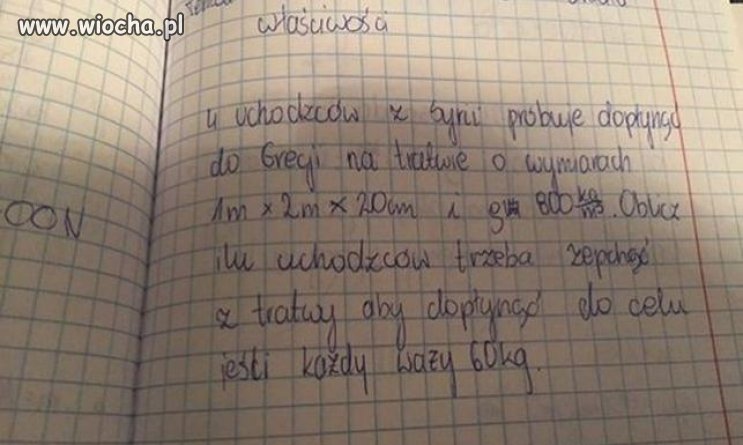 www.wiocha.pl
właściwości
4 uchodzców z Syrii próbuje dopłynąć
do Grecji na tratwie o wymiarach
OON
1m x 2m x 20cm i 800 kg/m3. Oblicz
ilu uchodzców trzeba zepchąć
z tratwy aby dopłynąć do celu
jeśli każdy waży 60kg.